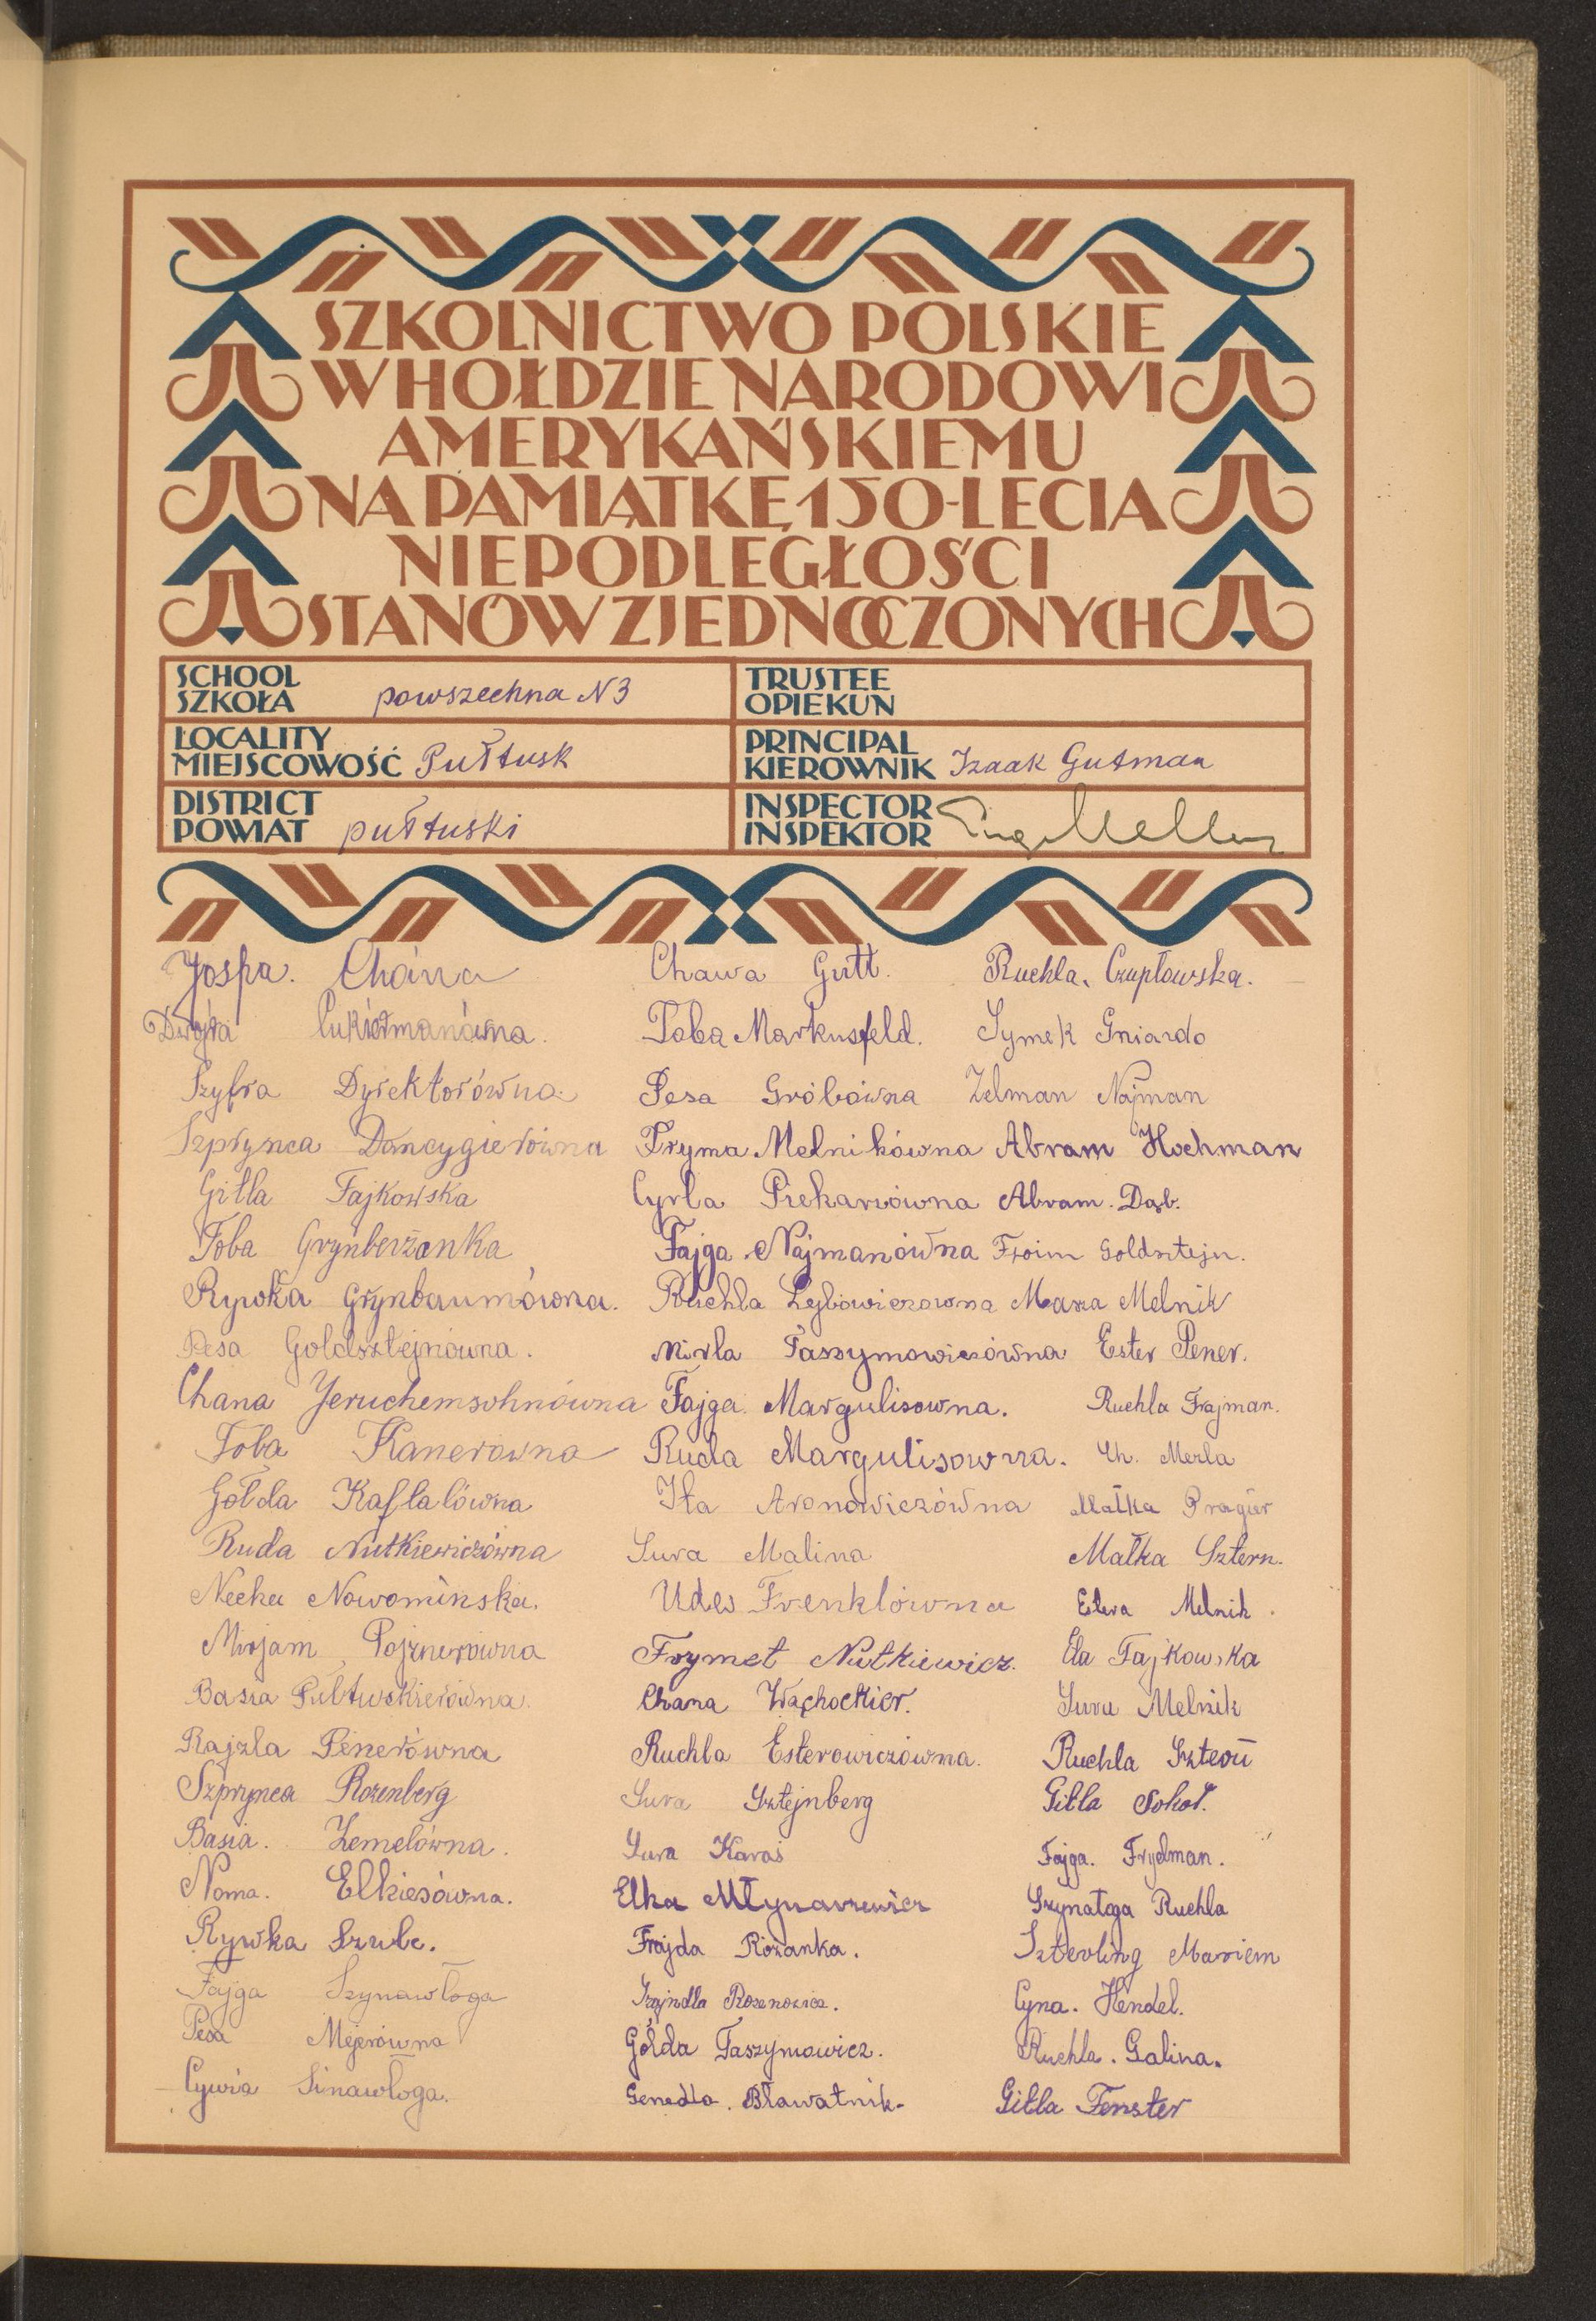 SZKOLNICTWO POLSKIE
W HOŁDZIE NARODOWI
AMERYKAŃSKIEMU
NA PAMIĄTKĘ 150-LECIA
NIEPODLEGŁOŚCI
STANÓW ZJEDNOCZONYCH
SCHOOL
SZKOŁA powszechna N3
TRUSTEE
OPIEKUN
LOCALITY
MIEJSCOWOŚĆ Pułtusk
PRINCIPAL
KIEROWNIK Izaak Gutman
DISTRICT
POWIAT pułtuski
INSPECTOR
INSPEKTOR
Jospa. Chana
Dwojra
Szyfra Dyrektorówna
Szprynca Dancygierówna
Gitla Fajkowska
Toba Grynberżanka
Rywka Grynbaumówna.
Pesa Goldsztejnówna.
Chana Jeruchemsohnówna
Toba Kanerówna
Gołda Kaftalówna
Ruda Nutkiewiczówna
Necha Nowomińska.
Mirjam Pojznerówna
Basia Pułtuskierówna.
Rajzla Penerówna
Szprynca Rozenberg
Basia. Zemelówna.
Noma. Elkiesówna.
Rywka Szulc.
Fajga Szynawłoga
Pesa Mejerówna
Cywia Sinawłoga.
Chawa Gutt.
Toba Markusfeld.
Pesa Gróbówna
Fryma Melnikówna
Cyrla Piekarzówna
Fajga Najmanówna
Ruchla Lejbowiczowna
Mirla Taszymowiczówna
Fajga Margulisowna.
Ruda Margulisowna.
Ita Aronowiczówna
Sura Malina
Udes Frenklówna
Frymet Nutkiewicz.
Chana
Ruchla Esterowiczówna.
Sura Sztejnberg
Sura Karaś
Elka Młynarzewicz
Frajda Rózanka.
Szajndla
Gołda Taszymowicz.
Genedla. Bławatnik.
Ruchla. Czupłowska.
Symek Gniardo
Zelman Najman
Abram Hochman
Abram. Dąb.
Froim Goldsztejn.
Masza Melnik
Ester Pener.
Ruchla Frajman.
Ch. Merla
Małka Pragier
Małka Sztern.
Melnik.
Ela Fajkowska
Sura Melnik
Ruchla
Gitla Sokoł.
Fajga. Frydman.
Ruchla
Szterling Mariem
Cyna. Hendel.
Ruchla. Galina.
Gitla Fenster